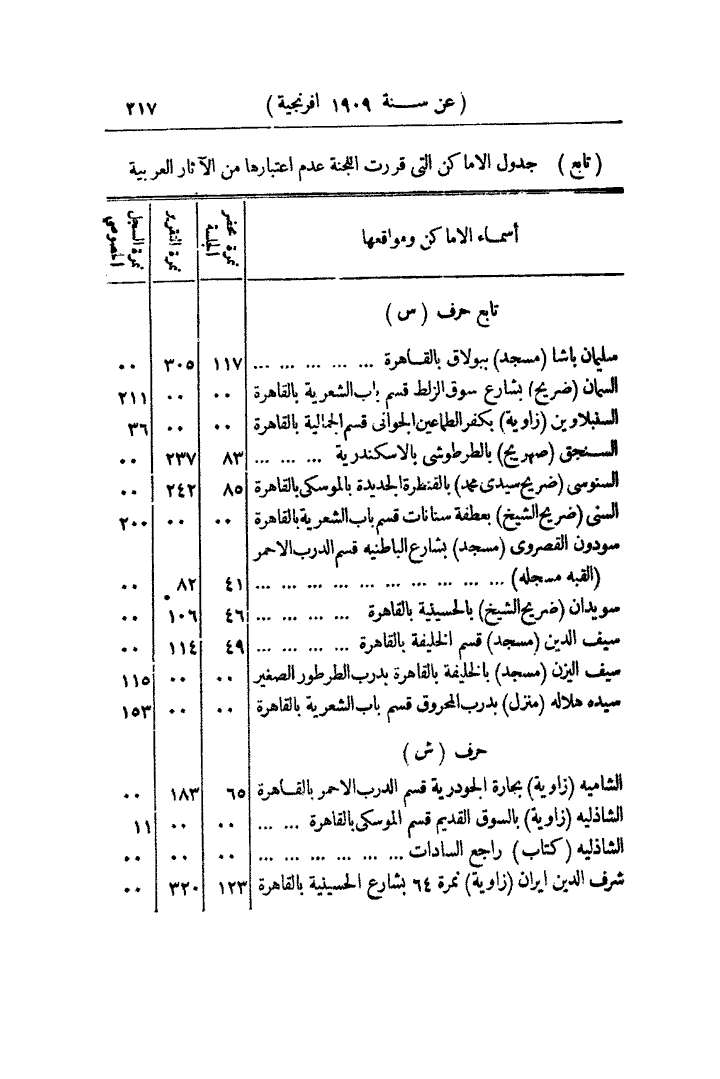 (عن سنة ١٩٠٩ افرنجية) ٢١٧
(تابع) جدول الاماكن التى قررت اللجنة عدم اعتبارها من الآثار العربية
أسماء الاماكن ومواقعها | نمرة محضر الجلسة | نمرة التقرير | نمرة السجل الخصوصى
تابع حرف (س)
سليمان باشا (مسجد) ببولاق بالقاهرة ... ... ... ... ... ١١٧ ٣٠٥ ..
السمان (ضريح) بشارع سوق الزلط قسم باب الشعرية بالقاهرة .. .. ٢١١
السنبلاوين (زاوية) بكفر الطماعين الجوانى قسم الجمالية بالقاهرة .. .. ٣٦
السنجق (صهريج) بالطرطوشى بالاسكندرية ... ... ... ٨٣ ٢٣٧ ..
السنوسى (ضريح سيدى محمد) بالقنطرة الجديدة بالموسكى بالقاهرة ٨٥ ٢٤٢ ..
السنى (ضريح الشيخ) بعطفة سنانات قسم باب الشعرية بالقاهرة .. .. ٢٠٠
سودون القصروى (مسجد) بشارع الباطنيه قسم الدرب الاحمر
(القبه مسجله) ... ... ... ... ... ... ... ... ... ٤١ ٨٢ ..
سويدان (ضريح الشيخ) بالحسينية بالقاهرة ... ... ... ... ٤٦ ١٠٦ ..
سيف الدين (مسجد) قسم الخليفة بالقاهرة ... ... ... ... ٤٩ ١١٤ ..
سيف اليزن (مسجد) بالخليفة بالقاهرة بدرب الطرطور الصغير .. .. ١١٥
سيده هلاله (منزل) بدرب المحروق قسم باب الشعرية بالقاهرة .. .. ١٥٣
حرف (ش)
الشاميه (زاوية) بحارة الجودرية قسم الدرب الاحمر بالقاهرة ٦٥ ١٨٣ ..
الشاذليه (زاوية) بالسوق القديم قسم الموسكى بالقاهرة ... ... .. .. ١١
الشاذليه (كتاب) راجع السادات ... ... ... ... ... ... .. .. ..
شرف الدين ايران (زاوية) نمرة ٦٤ بشارع الحسينية بالقاهرة ١٢٣ ٣٢٠ ..